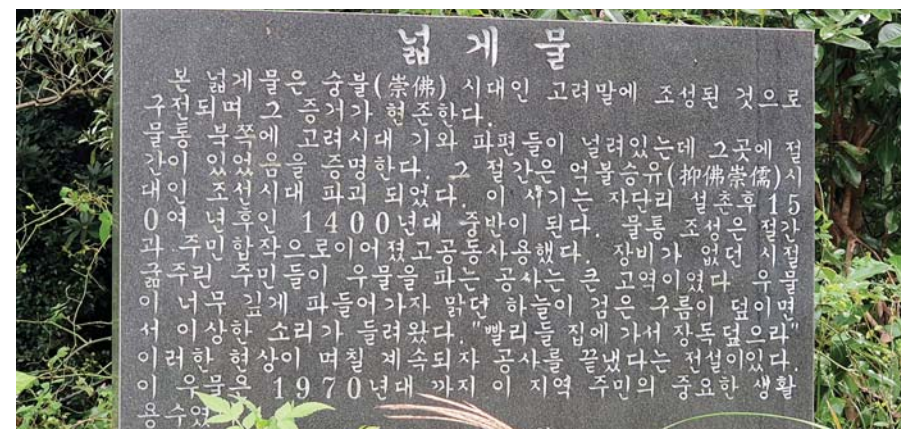 넓게물
본 넓게물은 숭불(崇佛) 시대인 고려말에 조성된 것으로
구전되며 그 증거가 현존한다.
물통 북쪽에 고려시대 기와 파편들이 널려있는데 그곳에 절
간이 있었음을 증명한다. 그 절간은 억불숭유(抑佛崇儒)시
대인 조선시대 파괴 되었다. 이 시기는 자단리 설촌후 15
0여 년후인 1400년대 중반이 된다. 물통 조성은 절간
과 주민합작으로이어졌고공동사용했다. 장비가 없던 시절
굶주린 주민들이 우물을 파는 공사는 큰 고역이였다 우물
이 너무 깊게 파들어가자 맑던 하늘이 검은 구름이 덮이면
서 이상한 소리가 들려왔다. "빨리들 집에 가서 장독덮으라"
이러한 현상이 며칠 계속되자 공사를 끝냈다는 전설이있다.
이 우물은 1970년대 까지 이 지역 주민의 중요한 생활
용수였